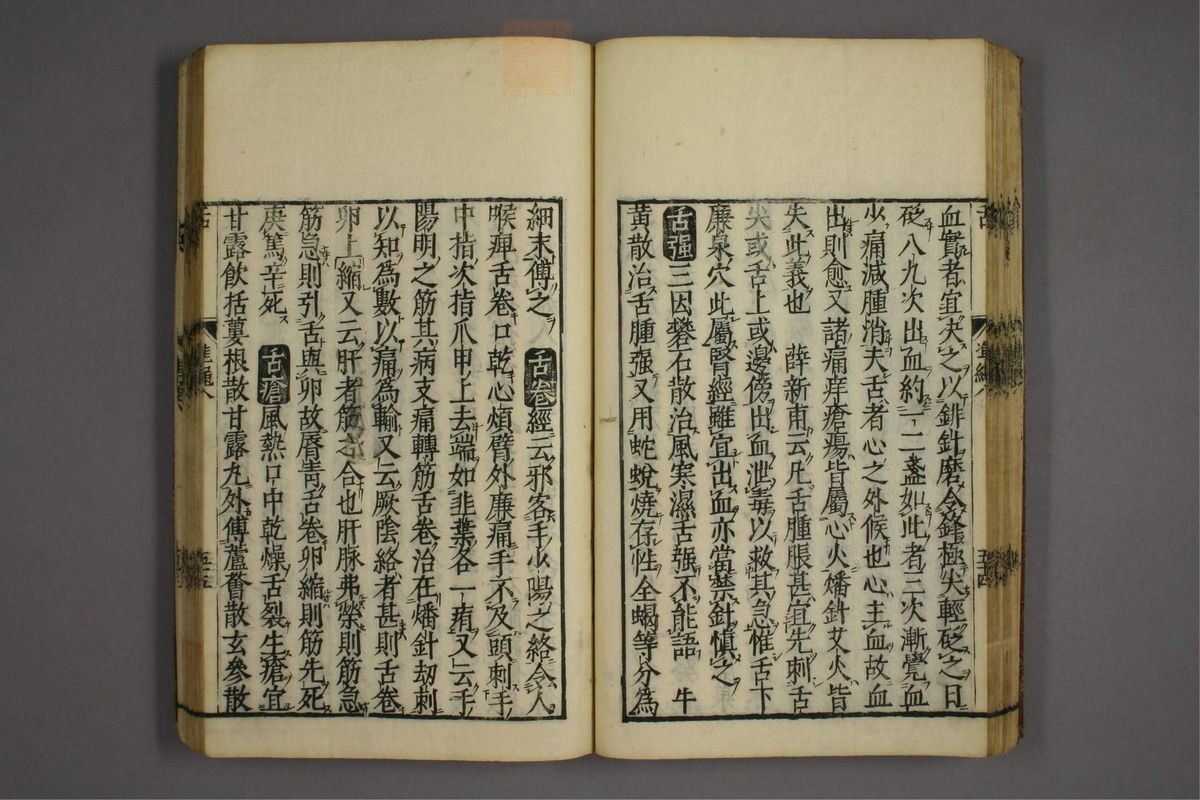 血實者宜決之以鈹針磨令鋒極尖輕砭之日
砭八九次出血約一二盞如此者三次漸覺血
少痛減腫消夫舌者心之外候也心主血故血
出則愈又諸痛痒瘡瘍皆屬心火燔針艾火皆
失此義也　薛新甫云凡舌腫脹甚宜先刺舌
尖或舌上或邊傍出血泄毒以救其急惟舌下
廉泉穴此屬腎經雖宜出血亦當禁針慎之
舌强三因礬石散治風寒濕舌强不能語　牛
黃散治舌腫强又用蛇蛻燒存性全蝎等分爲
細末傅之　舌卷經云邪客手少陽之絡令人
喉痺舌卷口乾心煩臂外廉痛手不及頭刺手
中指次指爪甲上去端如韭葉各一痏又云手
陽明之筋其病支痛轉筋舌卷治在燔針刧刺
以知爲數以痛爲輸又云厥陰絡者甚則舌卷
卵上縮又云肝者筋之合也肝脉弗榮則筋急
筋急則引舌與卵故唇靑舌卷卵縮則筋先死
庚篤辛死　舌瘡風熱口中乾燥舌裂生瘡宜
甘露飲括蔞根散甘露丸外傅蘆薈散玄參散